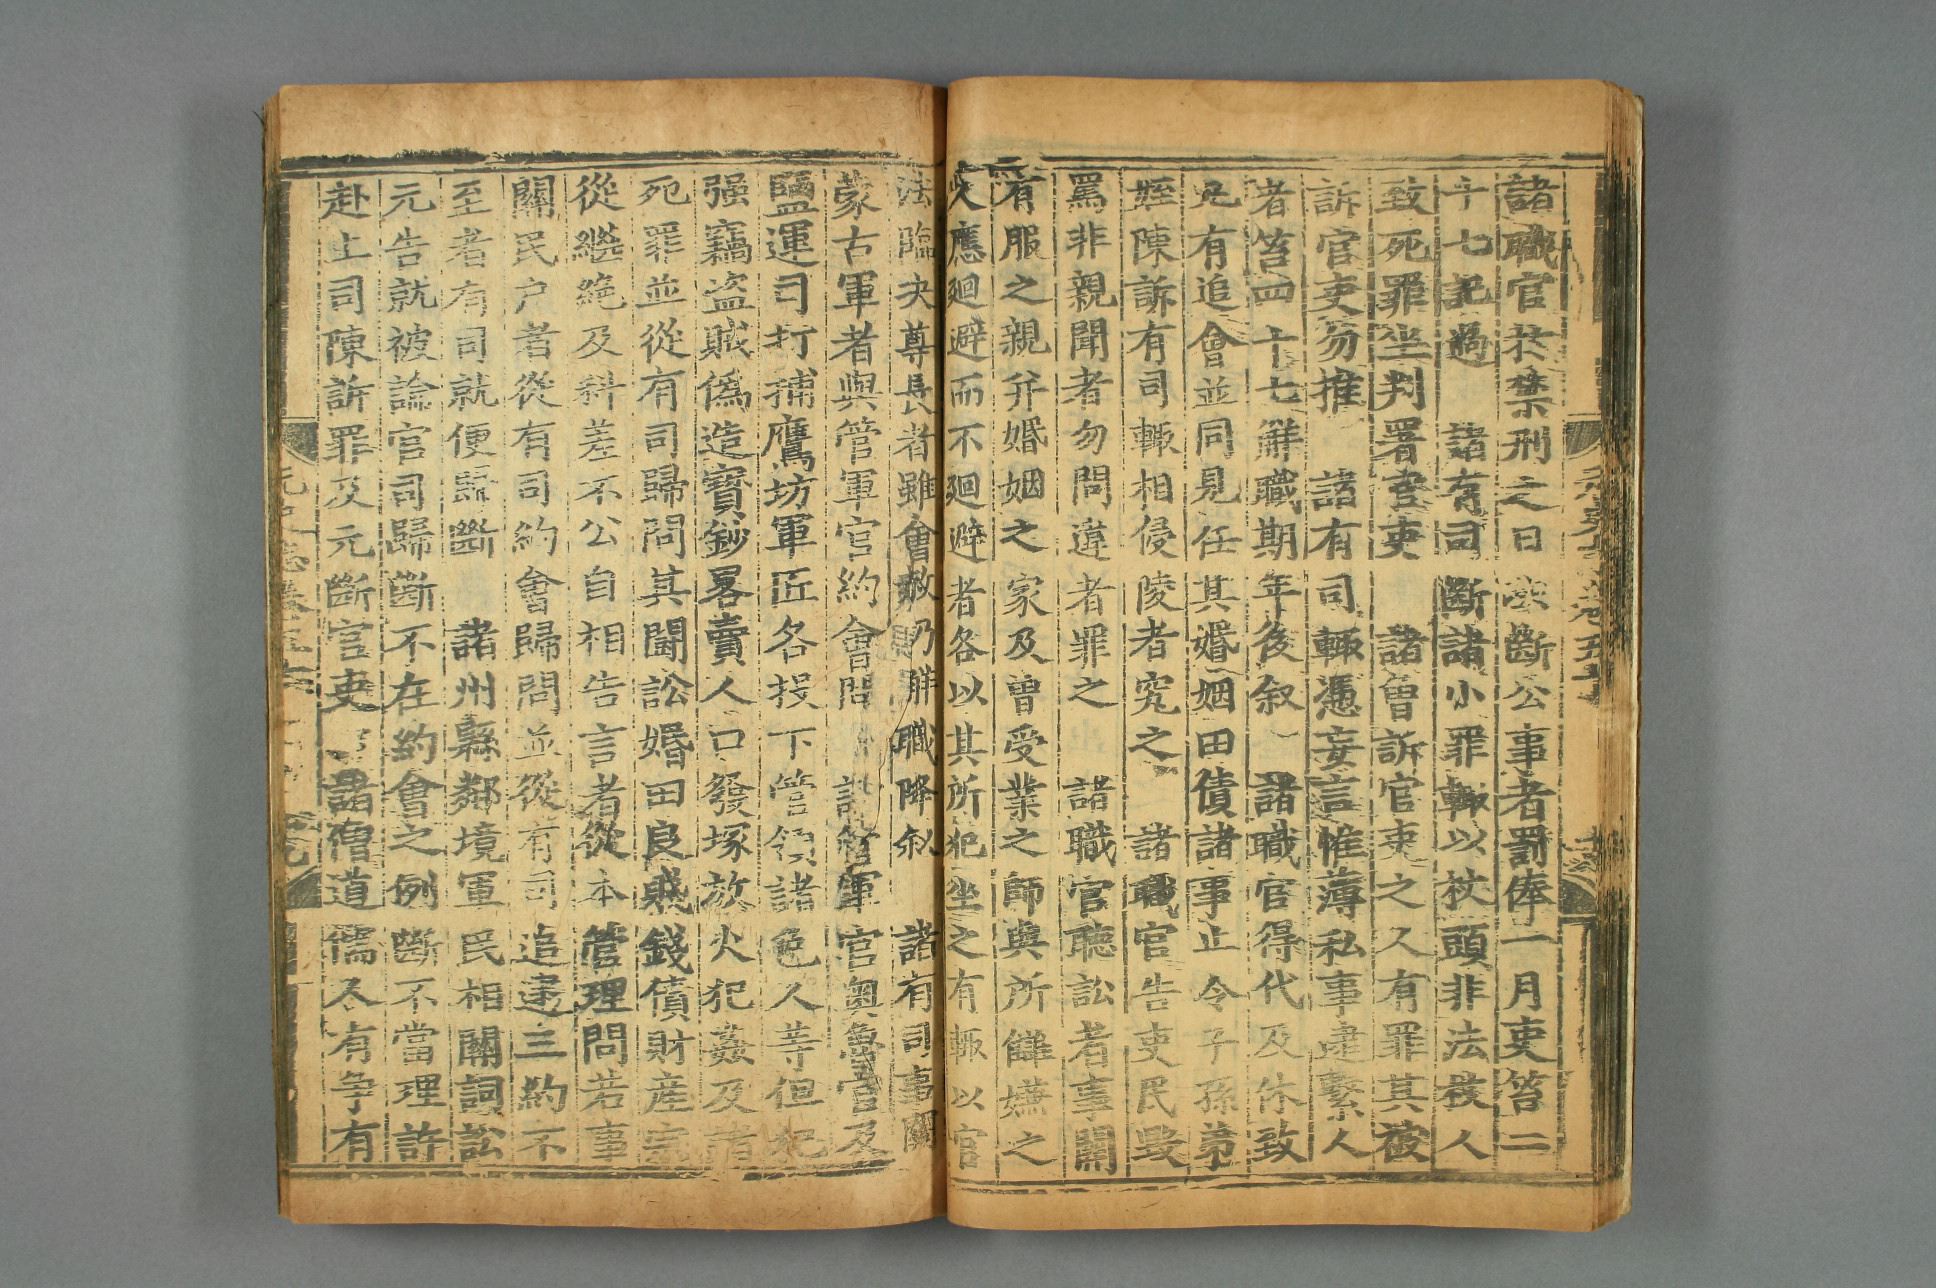 諸職官於禁刑之日決斷公事者罰俸一月吏笞二
十七記過　諸有司斷諸小罪輒以杖頭非法杖人
致死罪坐判署官吏　諸曾訴官吏之人有罪其被
訴官吏勿推　諸有司輒憑妄言帷薄私事逮繫人
者笞四十七解職期年後叙　諸職官得代及休致
凡有追會並同見任其婚姻田債諸事止令子孫弟
姪陳訴有司輒相侵陵者究之　諸職官告吏民毀
罵非親聞者勿問違者罪之　諸職官聽訟者事關
有服之親并婚姻之家及曾受業之師與所讎嫌之
人應迴避而不迴避者各以其所犯坐之有輒以官
法臨決尊長者雖會赦仍解職降叙　諸有司事關
蒙古軍者與管軍官約會問　諸管軍官奧魯官及
鹽運司打捕鷹坊軍匠各投下管領諸色人等但犯
强竊盗賊偽造寶鈔畧賣人口發塚放火犯姦及諸
死罪並從有司歸問其鬭訟婚田良賤錢債財産宗
從繼絶及科差不公自相告言者從本管理問若事
關民户者從有司約會歸問並從有司追逮三約不
至者有司就便歸斷　諸州縣鄰境軍民相關詞訟
元告就被論官司歸斷不在約會之例斷不當理許
赴上司陳訴罪及元斷官吏　諸僧道儒人有争有